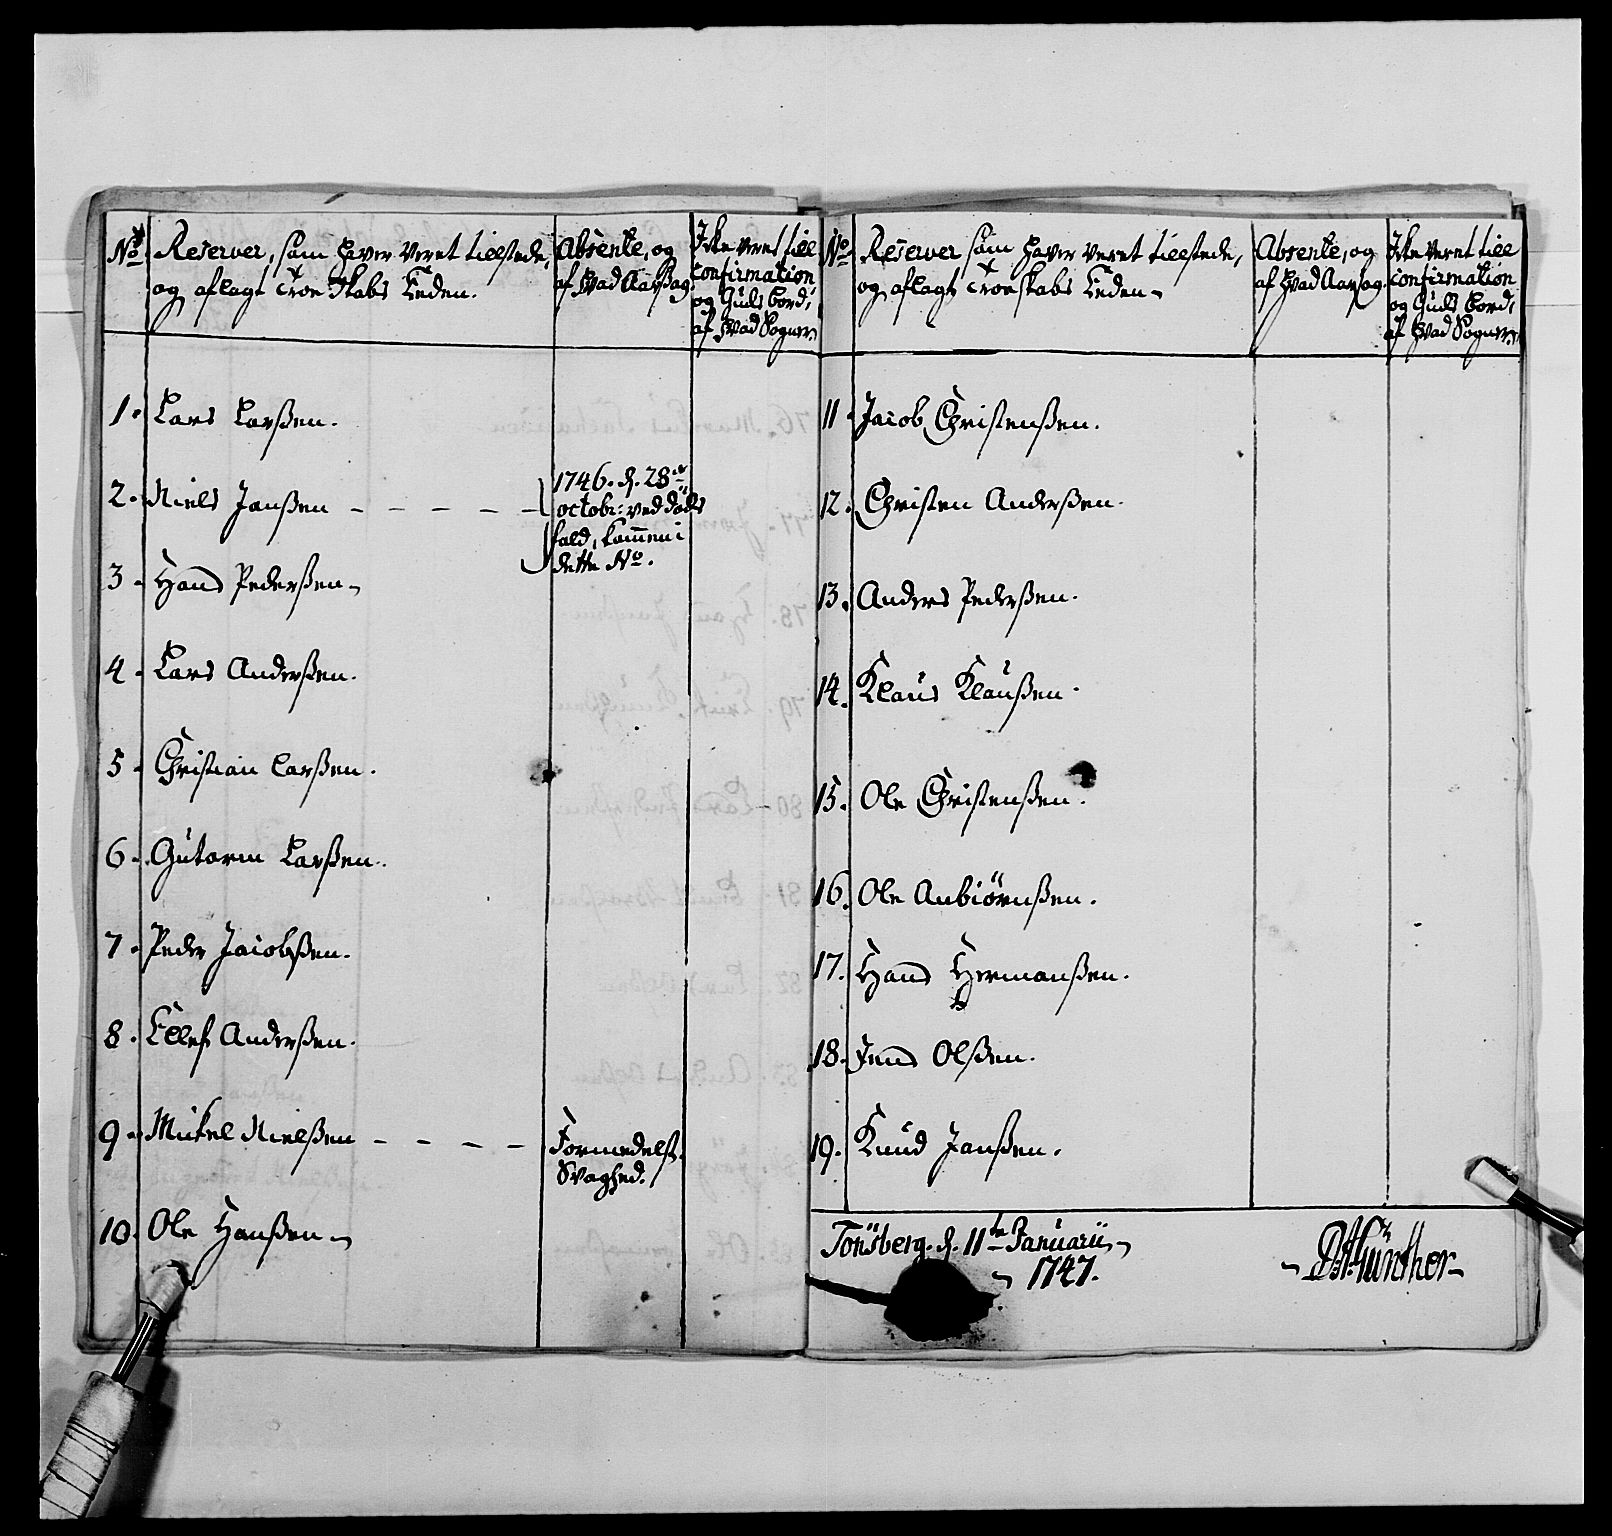 No
Reserver, som haver veret tillstede,
og aflagt Troeskabs Eeden.
Absente, og
af hvad Aarsag
Ike veret till
confirmation
og Guds bord,
af hvad Sogner.
1. Lars Larßen.
2. Niels Janßen - - - - -
1746. d. 28de
octobr: ved døds
fald, kommen i
dette No.
3. Hans Pederßen
4. Lars Anderßen.
5. Christian Larßen.
6. Gutorm Larßen.
7. Peder Jacobßen.
8. Ellef Anderßen.
9. Mikel Nielßen - - - -
Formedelst
Svaghed.
10. Ole Hanßen
No
Reserver, som haver veret tillstede,
og aflagt Troeskabs Eeden
Absente, og
af hvad Aarsag
Ike veret till
confirmation
og Guds bord,
af hvad Sogner.
11. Jacob Christenßen.
12. Christen Anderßen.
13. Anders Pederßen.
14. Klaus Klaußen.
15. Ole Christenßen.
16. Ole Anbiörnßen.
17. Hans Hermanßen.
18. Jens Olßen.
19. Knud Janßen.
Tönsberg. d. 11te Januarii
1747.
Günther